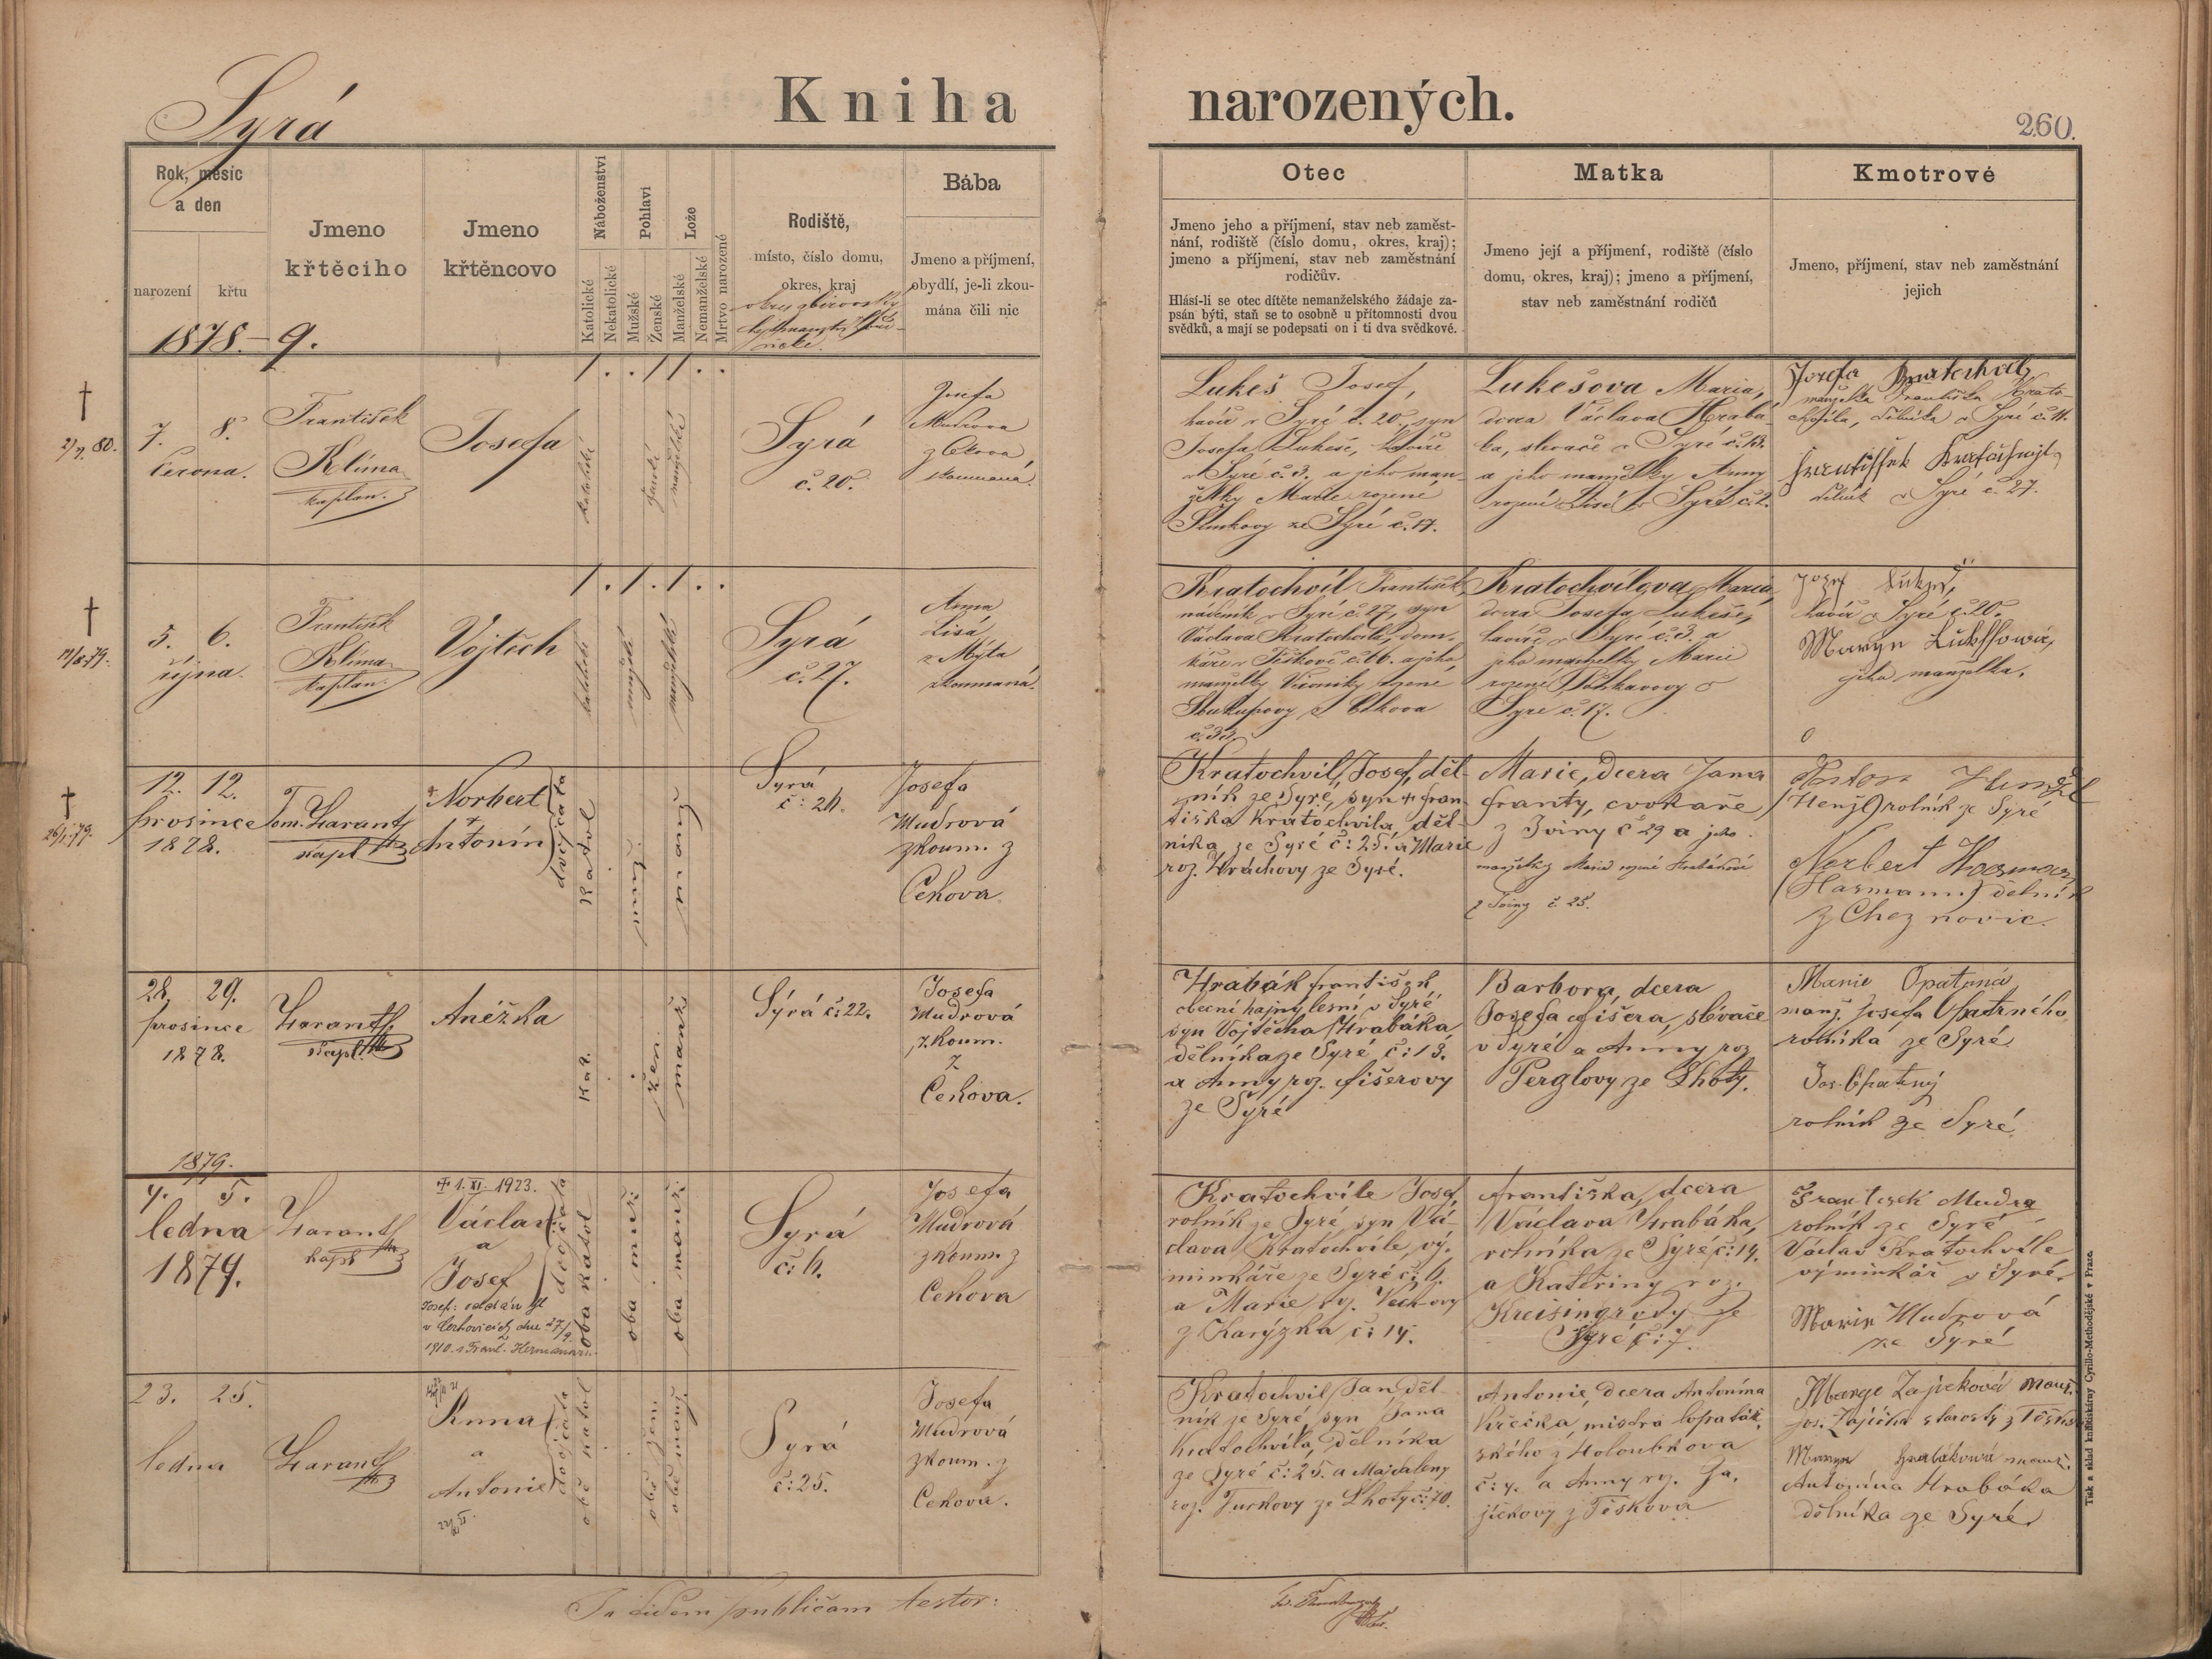 Syrá
Kniha narozených.
260.
Rok, měsíc
a den
narození křtu
1878.–9.
Jmeno
křtěcího
Jmeno
křtěncovo
Náboženství
Katolické
Nekatolické
Pohlaví
Mužské
Ženské
Lože
Manželské
Nemanželské
Mrtvo narozené
Rodiště,
místo, číslo domu,
okres, kraj
okres zbirovský
Bába
Jmeno a příjmení,
obydlí, je-li zkou-
mána čili nic
Otec
Jmeno jeho a příjmení, stav neb zaměst-
nání, rodiště (číslo domu, okres, kraj);
jmeno a příjmení, stav neb zaměstnání
rodičův.
Hlásí-li se otec dítěte nemanželského žádaje za-
psán býti, staň se to osobně u přítomnosti dvou
svědků, a mají se podepsati on i ti dva svědkové.
Matka
Jmeno její a příjmení, rodiště (číslo
domu, okres, kraj); jmeno a příjmení,
stav neb zaměstnání rodičů
Kmotrové
Jmeno, příjmení, stav neb zaměstnání
jejich
†
80.
7. 8.
června.
František
Klíma
kaplan.
Josefa
katolické
ženské
manželské
Syrá
č. 20.
Josefa
Mudrova
z Čekova
zkoumaná.
Lukeš Josef,
havíř v Syré č. 20., syn
Josefa Lukeše, havíře
v Syré č. 3. a jeho man-
želky Marie rozené
ze Syré č. 17.
Lukešova Maria,
dcera Václava Hrabá-
ka, slevače v Syré č. 13.
a jeho manželky Anny
rozené Lisé v Syré č. 2.
Josefa Kratochvil,
manželka Františka Krato-
chvíla, dělníka v Syré č. 11.
František Kratochvjl,
dělník v Syré č. 27.
†
79.
5. 6.
října.
František
Klíma
kaplan.
Vojtěch
katolické
mužské
manželské
Syrá
č. 27.
Anna
Lisá
z Mýta
zkoumaná.
Kratochvíl František,
nádeník v Syré č. 27., syn
Václava Kratochvíla, dom-
káře v Těškově č. 66. a jeho
manželky Veroniky rozené
Soukupovy z Čekova
č. 33.
Kratochvílova Maria,
dcera Josefa Lukeše,
havíře v Syré č. 3. a
jeho manželky Marie
rozené
Syre č. 17.
Jozef Lukeš,
havíř v Syré č. 20,
Maryn Lukessowa,
jeho manželka.
†
26/1. 79.
12. 12.
prosince
1878.
Tom. Harant
kapl.
† Norbert
+
Antonín
dvojčata
Katol
muž.
manž
Syrá
č: 24.
Josefa
Mudrová
zkoum. z
Čekova.
Kratochvil Josef, děl-
ník ze Syré, syn † Fran-
tiška Kratochvíla, děl-
níka ze Syré č: 25. a Marie
roz. Hráchovy ze Syré.
Marie, dcera Jana
Franty, cvokaře
z Tviny č 29 a jeho
manželky Marie rozené Hrabákové
z Tviny č 25.
Anton Henžl
(Henžl) rolník ze Syré
Norbert Hasman
(Hasmann) dělník
z Cheznovic.
28. 29.
prosince
1878.
Harant
kapl.
Anéžka
kat.
žen.
manž.
Syrá č: 22.
Josefa
Mudrová
zkoum.
z
Čekova.
Hrabák František
obecní hajný lesní v Syré
syn Vojtěcha Hrabáka
dělníka ze Syré č: 13.
a Anny roz. Fišerovy
ze Syré
Barbora, dcera
Josefa Fišera, slévače
v Syré a Anny roz
Perglovy ze Lhoty.
Marie Opatrná
manž. Josefa Opatrného,
rolníka ze Syré
Jos. Opatrný
rolník ze Syré.
1879.
4. 5.
ledna
1879.
Harant
kapl
† 1. XI. 1923.
Václav
a
Josef
dvojčata
Josef: oddán byl
v Cerhovicích dne 27/9.
1910. s Frant. Hermannovou
oba katol
oba muž:
oba manž:
Syrá
č: 6.
Josefa
Mudrová
zkoum. z
Čekova
Kratochvíle Josef,
rolník ze Syré, syn Vá-
clava Kratochvíle, vý-
minkáře ze Syré č: 6.
a Marie roz. Vackovy
z Karýzka č: 14.
Františka, dcera
Václava Hrabáka,
rolníka ze Syré č: 14.
a Kateřiny roz.
Kreisingrovy ze
Syré č: 7.
Frantisek Mudra
rolník ze Syré
Václav Kratochvíle
výminkář v Syré.
Marie Mudrová
ze Syré
23. 25.
ledna
Harant
Anna
a
Antonie
dvojčata
obě katol
obě žen.
obě manž.
Syrá
č: 25.
Josefa
Mudrová
zkoum. z
Čekova.
Kratochvil Jan, děl-
ník ze Syré, syn Jana
Kratochvíla, dělníka
ze Syré č: 25. a Majdaleny
roz. Turkovy ze Lhoty č: 70.
Antonie, dcera Antonína
Křečka, mistra lopatář-
ského z Holoubkova
č: 4. a Anny roz. Za-
jíčkovy z Těškova
Marye Zajícková manž.
Jos. Zajíčka starosty z Těškova
Maryn Hrabakowá manž.
Antonína Hrabáka
dělníka ze Syré.
In fidem publicam testor:
Tisk a sklad knihtiskárny Cyrillo-Methodějské v Praze.